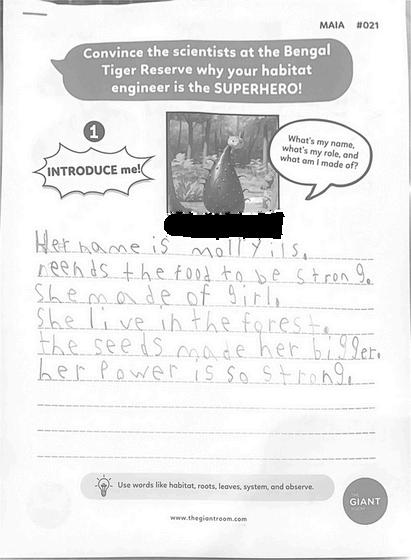 MAIA #021
Convince the scientists at the Bengal
Tiger Reserve why your habitat
engineer is the SUPERHERO!
1
INTRODUCE me!
What's my name,
what's my role, and
what am I made of?
Her name is mollyils.
neends the food to be strong.
She made of girl.
She live in the forest.
the seeds made her bigger.
her Power is so strong.
Use words like habitat, roots, leaves, system, and observe.
THE
GIANT
ROOM
www.thegiantroom.com